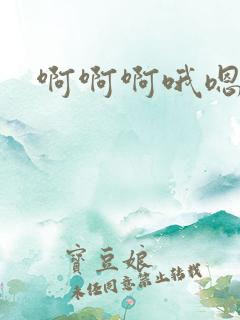 啊啊啊哦嗯
寳豆娘
未经同意禁止转载